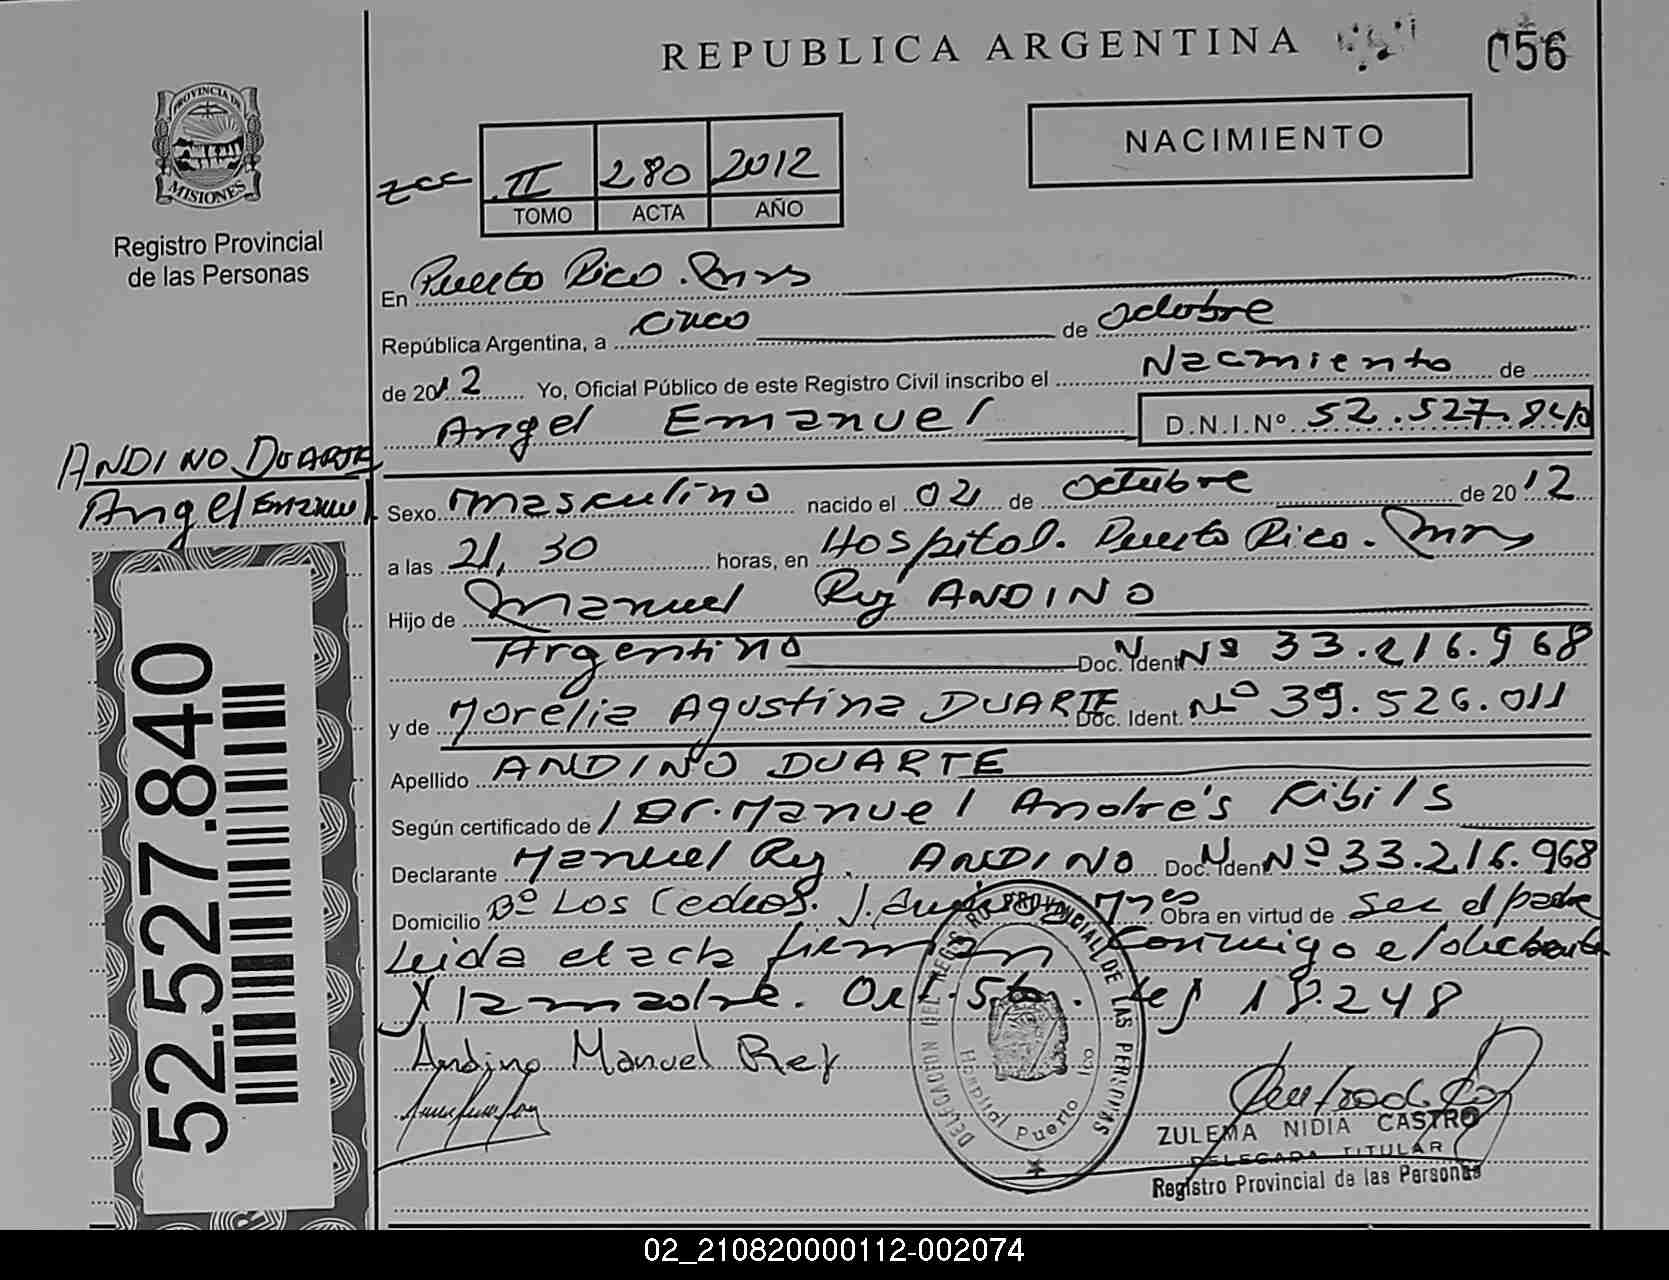 REPUBLICA ARGENTINA
056
PROVINCIA DE
MISIONES
Registro Provincial
de las Personas
NACIMIENTO
II 280 2012
TOMO ACTA AÑO
En Puerto Rico. Mns
República Argentina, a cinco de octubre
de 2012 Yo, Oficial Público de este Registro Civil inscribo el Nacimiento de
Angel Emanuel D.N.I.Nº 52.527.840
ANDINO DUARTE
Angel Emanuel
Sexo masculino nacido el 02 de octubre de 2012
a las 21,30 horas, en Hospital. Puerto Rico. Mns
Hijo de Manuel Rey ANDINO
Argentino Doc. Ident Nº 33.216.968
y de Morelia Agustina DUARTE Doc. Ident. Nº 39.526.011
Apellido ANDINO DUARTE
Según certificado de Dr. Manuel Andrés Kibils
Declarante Manuel Rey ANDINO Doc. Ident Nº 33.216.968
Domicilio Bº Los Cedros. Obra en virtud de ser el padre
Leida el acta firman conmigo el declarante
y la madre. Art. 18.248
Andino Manuel Rey
DELEGACION DEL REGISTRO PROVINCIAL DE LAS PERSONAS
Hospital Puerto Rico
ZULEMA NIDIA CASTRO
DELEGADA TITULAR
Registro Provincial de las Personas
52.527.840
02_210820000112-002074